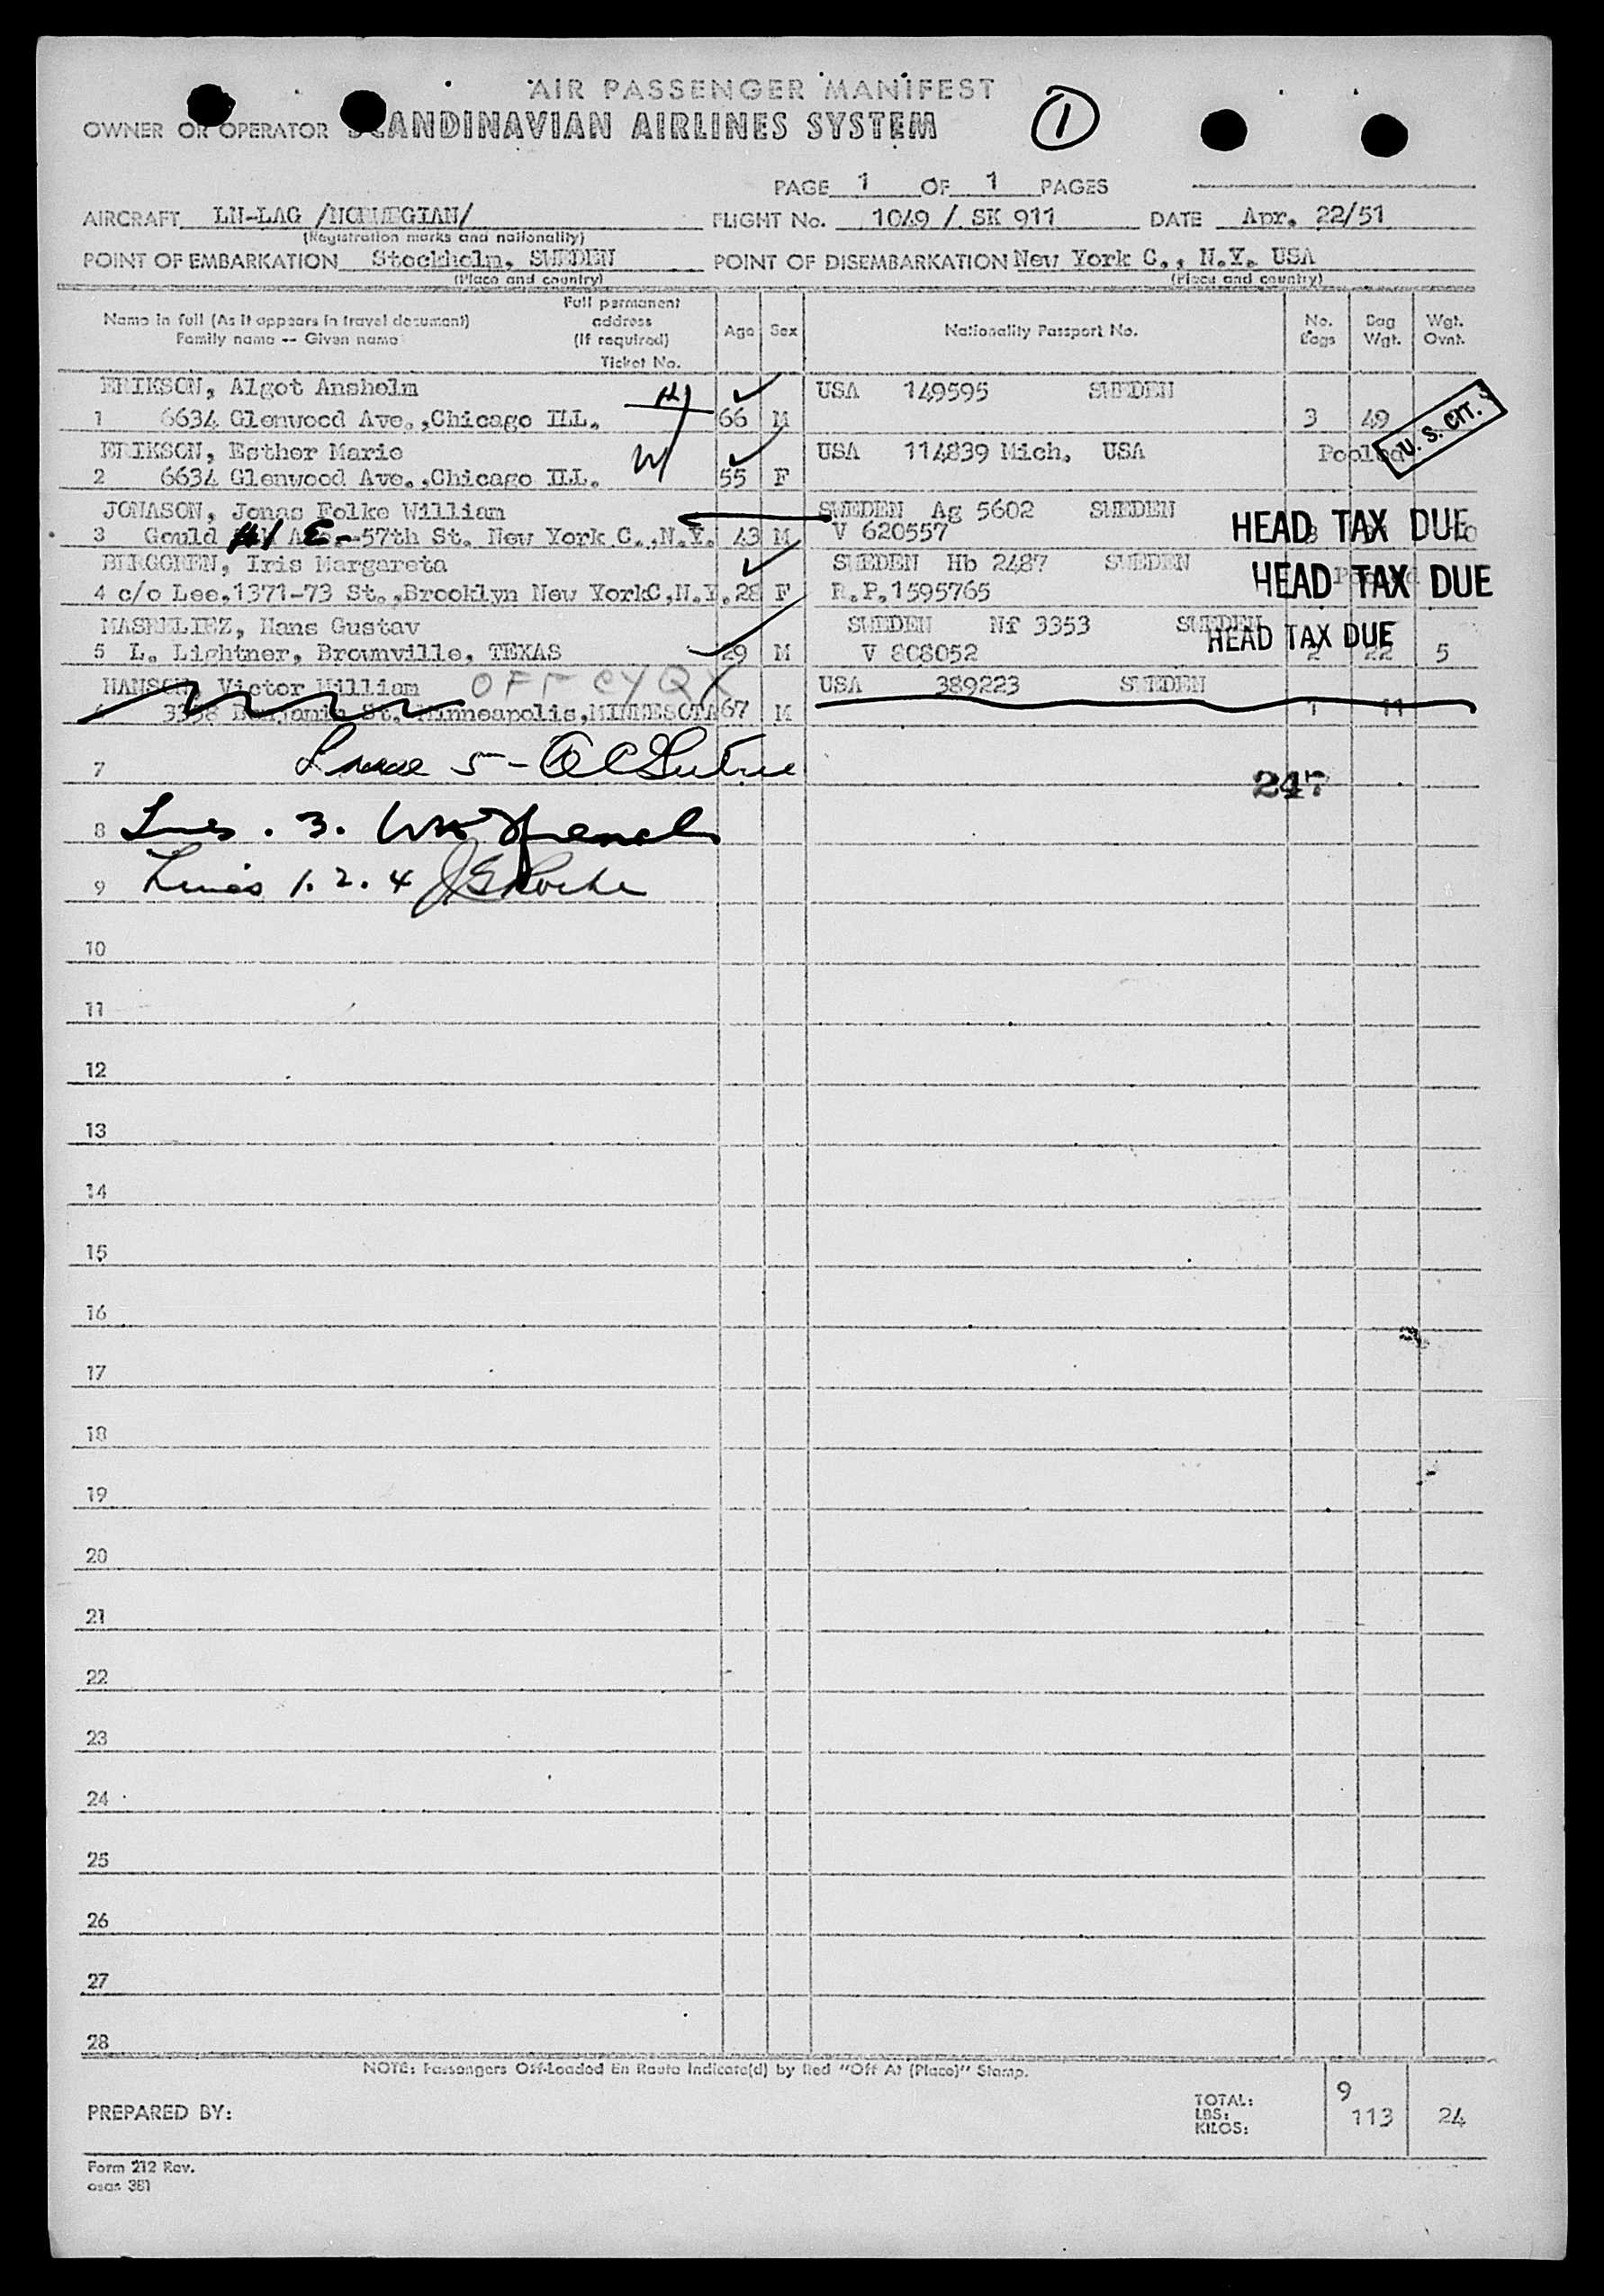 AIR PASSENGER MANIFEST
OWNER OR OPERATOR SCANDINAVIAN AIRLINES SYSTEM 1
PAGE 1 OF 1 PAGES
AIRCRAFT LN-LAG /NORWEGIAN/ FLIGHT No. 1049 / SK 911 DATE Apr. 22/51
(Registration marks and nationality)
POINT OF EMBARKATION Stockholm, SWEDEN POINT OF DISEMBARKATION New York C., N.Y. USA
(Place and country) (Place and country)
Name in full (As it appears in travel document) Family name -- Given name Full permanent address (If required) Ticket No. Age Sex Nationality Passport No. No. Bags Bag Wgt. Wgt. Ovnt.
ERIKSON, Algot Ansholm USA 149595 SWEDEN
1 6634 Glenwood Ave.,Chicago ILL. 66 M 3 49
U. S. CIT.
ERIKSON, Esther Marie W USA 114839 Mich, USA Pooled
2 6634 Glenwood Ave.,Chicago ILL. 55 F
JONASON, Jonas Folke William SWEDEN Ag 5602 SWEDEN
3 Gould 41 E. 57th St. New York C.,N.Y. 43 M V 620557 HEAD TAX DUE
BERGGREN, Iris Margareta SWEDEN Hb 2487 SWEDEN
4 c/o Lee,1371-73 St.,Brooklyn New YorkC,N.Y. 28 F R.P.1595765 HEAD TAX DUE
MASRELIEZ, Hans Gustav SWEDEN Nf 3353 SWEDEN
5 L. Lightner, Brownville, TEXAS 29 M V 808052 HEAD TAX DUE 2 22 5
HANSON, Victor William OFF CYQX USA 389223 SWEDEN
6 3338 Benjamin St. Minneapolis,MINNESOTA 67 M 1 11
7 5 - 247
8 Lines . 3.
9 Lines 1. 2. 4 J E Roche
10
11
12
13
14
15
16
17
18
19
20
21
22
23
24
25
26
27
28
NOTE: Passengers Off-Loaded En Route Indicate(d) by Red "Off At (Place)" Stamp.
PREPARED BY:
TOTAL: 9
LBS: 113 24
KILOS:
Form 212 Rev.
osas 381